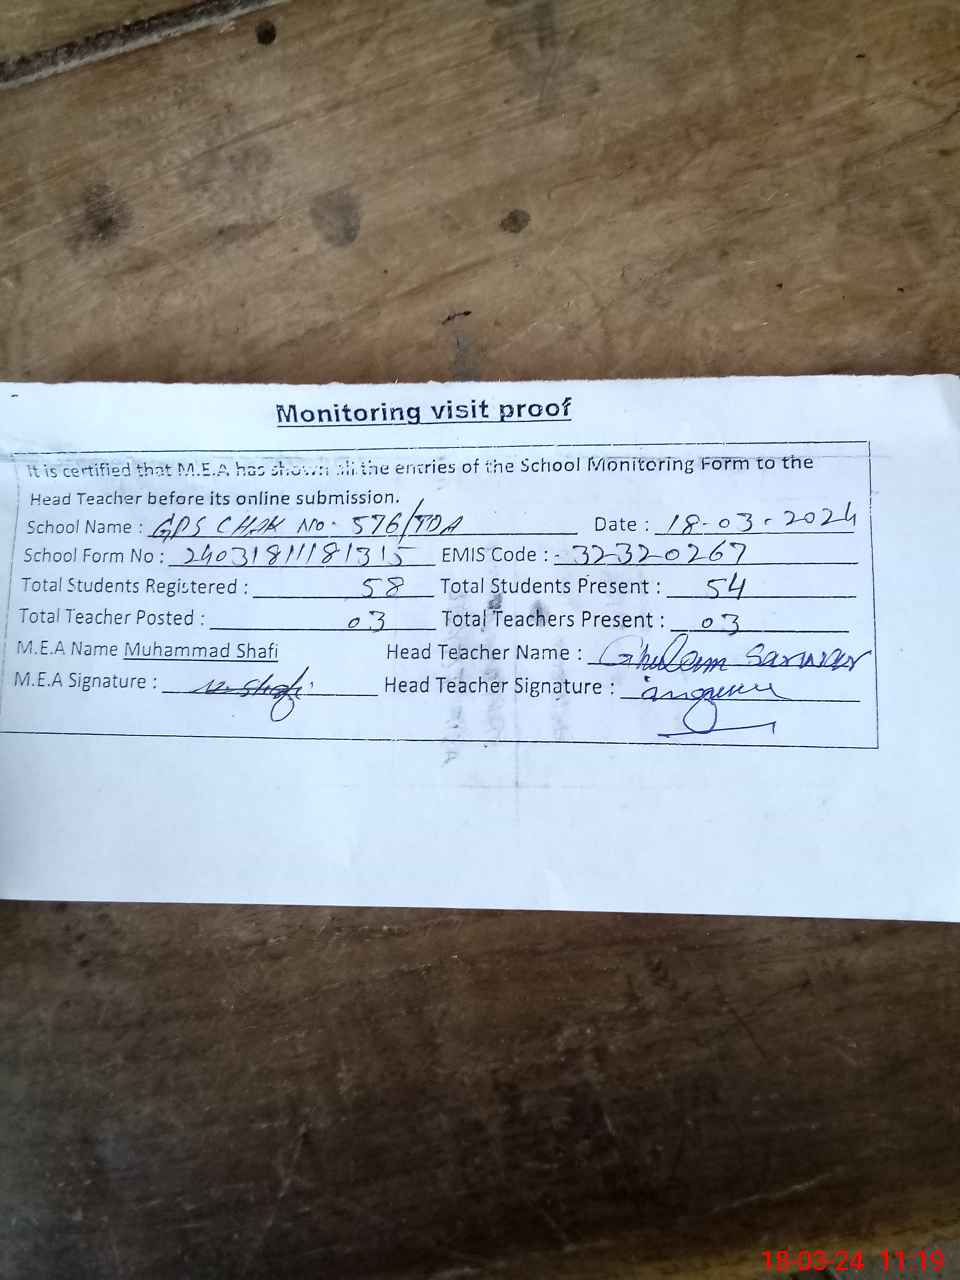 Monitoring visit proof
It is certified that M.E.A has shown all the entries of the School Monitoring Form to the
Head Teacher before its online submission.
School Name : GPS CHAK No. 576/TDA Date : 18-03-2024
School Form No : 24031811181315 EMIS Code :- 32320267
Total Students Registered : 58 Total Students Present : 54
Total Teacher Posted : 03 Total Teachers Present : 03
M.E.A Name Muhammad Shafi Head Teacher Name : Ghulam Sarwar
M.E.A Signature : M. Shafi Head Teacher Signature :
18-03-24 11:19